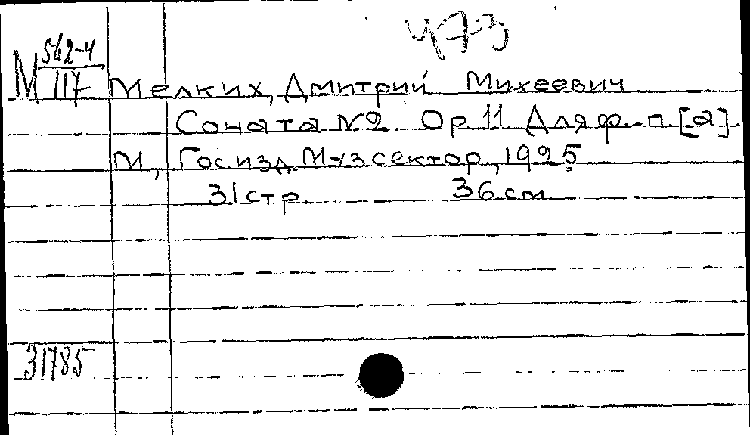 473
М 562-4
117
Мелких, Дмитрий Михеевич
Соната №2. Ор 11 Для ф.-п [а].
М., Госизд. Музсектор, 1925.
31 стр. 36 см
31785